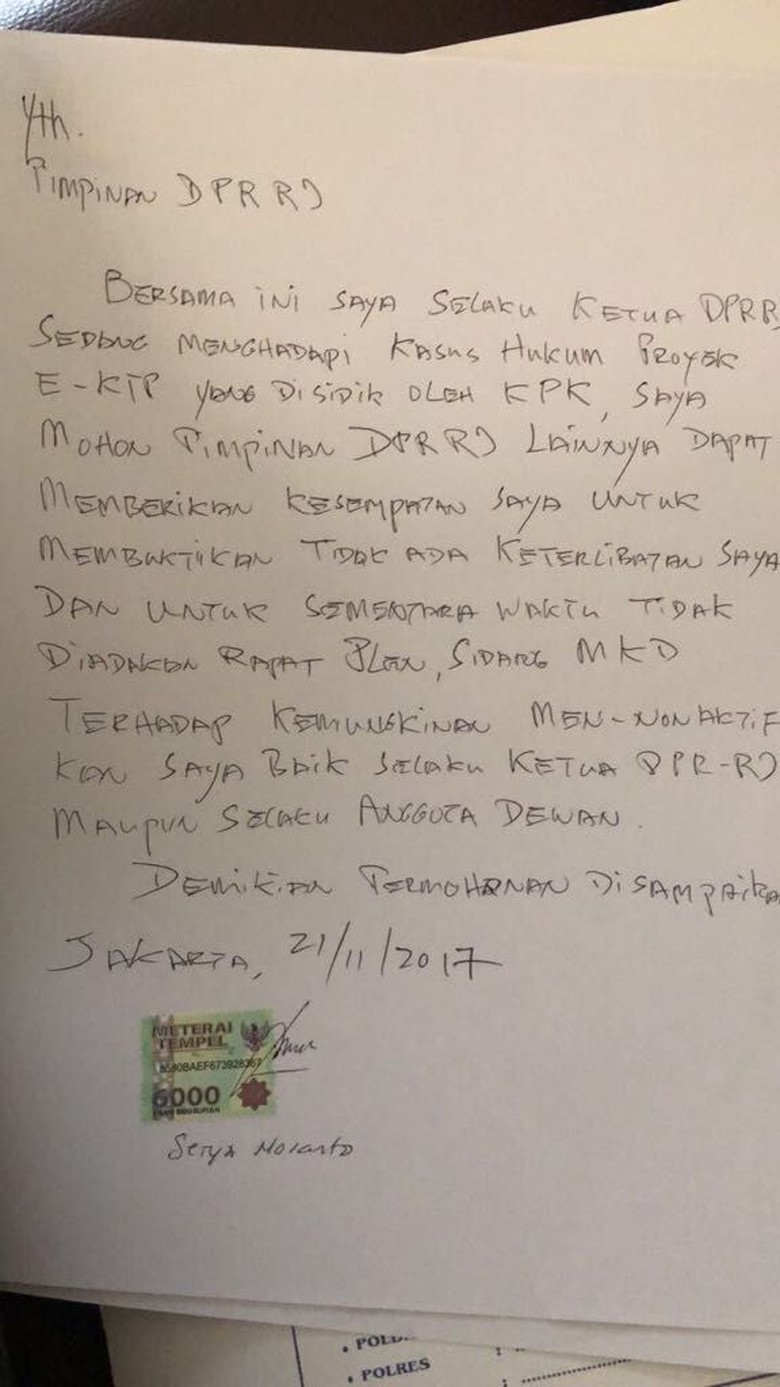 Yth.
Pimpinan DPR RI
Bersama ini saya selaku Ketua DPR R
sedang menghadapi kasus hukum proyek
E-KTP yang disidik oleh KPK, saya
mohon Pimpinan DPR RI lainnya dapat
memberikan kesempatan saya untuk
membuktikan tidak ada keterlibatan saya
dan untuk sementara waktu tidak
diadakan rapat Plen, sidang MKD
terhadap kemungkinan men-nonaktif
kan saya baik selaku Ketua DPR-RI
maupun selaku Anggota Dewan.
Demikian permohonan disampaika
Jakarta, 21/11/2017
METERAI
TEMPEL
6000
Setya Novanto
• POLRES :